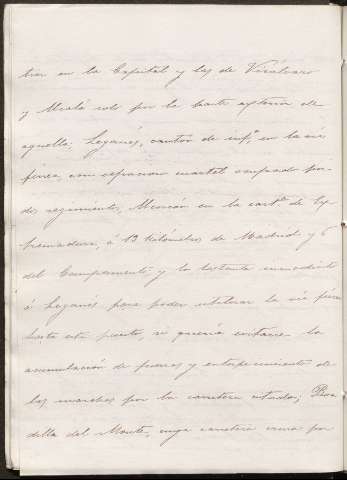 trar en la Capital y las de Vicálvaro
y Alcalá solo por la parte exterior de
aquella; Leganés, cantón de infª, en la vía
férrea, con espacioso cuartel ocupado por
dos regimientos, Alcorcón en la cartª de Ex
tremadura, á 13 kilómetros de Madrid y 6
del Campamento y lo bastante inmediato
á Leganés para poder utilizar la vía férrea
hasta este punto, si quería evitarse la
acumulación de fuerzas y entorpecimiento de
las marchas por la carretera citada; Boa
dilla del Monte, cuya carretera cruza por